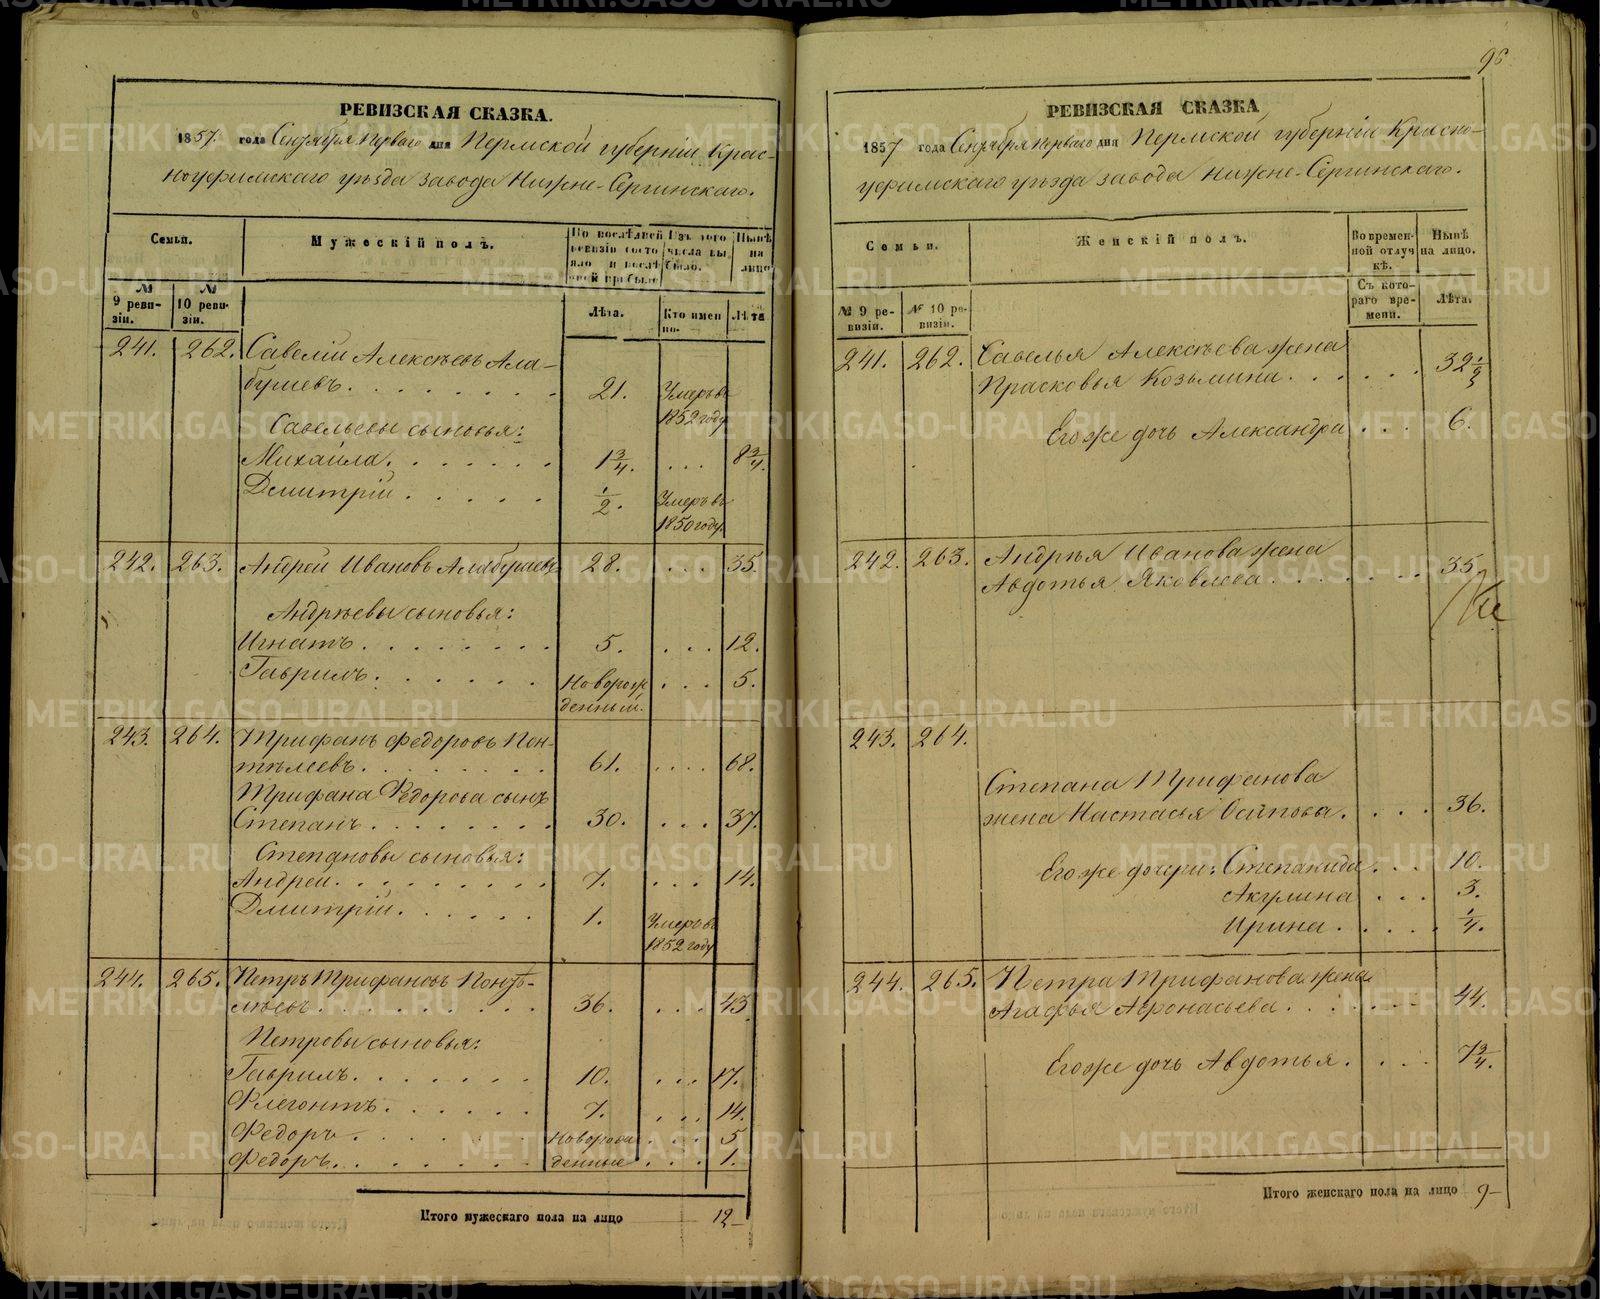 РЕВИЗСКАЯ СКАЗКА.
1857. года Сентября перваго дня Пермской губерніи Крас-
ноуфимскаго уѣзда завода Нижне-Сергинскаго.
Семьи.
Мужескій полъ.
По послѣдней ревизіи состояло и послѣ оной прибыло
Изъ того числа выбыло.
Нынѣ на лицо
№ 9 ревизіи.
№ 10 ревизіи.
Лѣта.
Кто именно.
Лѣта
241. 262. Савелій Алексѣевъ Ала-
бушевъ. 21. Умеръ въ 1852 году
Савельевы сыновья:
Михайла. 1 3/4. ... 8 3/4.
Дмитрій. 1/2. Умеръ въ 1850 году.
242. 263. Андрей Ивановъ Алабушевъ 28. ... 35.
Андрѣевы сыновья:
Игнатъ. 5. ... 12.
Гаврилъ. Новорожденный. ... 5.
243. 264. Трифанъ Федоровъ Пон-
телеевъ. 61. .... 68.
Трифана Федорова сынъ
Степанъ. 30. ... 37.
Степановы сыновья:
Андрей. 7. ... 14.
Дмитрій. 1. Умеръ въ 1852 году
244. 265. Петръ Трифановъ Понте-
лѣевъ. 36. ... 43
Петровы сыновья:
Гаврилъ. 10. ... 17.
Флегонтъ. 7. ... 14.
Федоръ. Новорож ... 5
Федоръ. денные ... 1.
Итого мужескаго пола на лицо 12—
96
РЕВИЗСКАЯ СКАЗКА
1857 года Сентября перваго дня Пермской губерніи Красно-
уфимскаго уѣзда завода Нижне-Сергинскаго.
Семьи.
Женскій полъ.
Во временной отлучкѣ.
Нынѣ на лицо.
№ 9 ревизіи.
№ 10 ревизіи.
Съ котораго времени.
Лѣта.
241. 262. Савелья Алексѣева жена
Прасковья Козьмина. 32 1/2
Его же дочь Александра ... 6.
242. 263. Андрѣя Иванова жена
Авдотья Яковлева. 35
243. 264.
Степана Трифанова
жена Настасья Осипова. ... 36.
Его же дочери: Степанида ... 10.
Акулина ... 3.
Ирина. 1/4.
244. 265. Петра Трифанова жена
Агафья Афонасьева. 44.
Его же дочь Авдотья. ... 7 3/4.
Итого женскаго пола на лицо 9—
METRIKI.GASO-URAL.RU